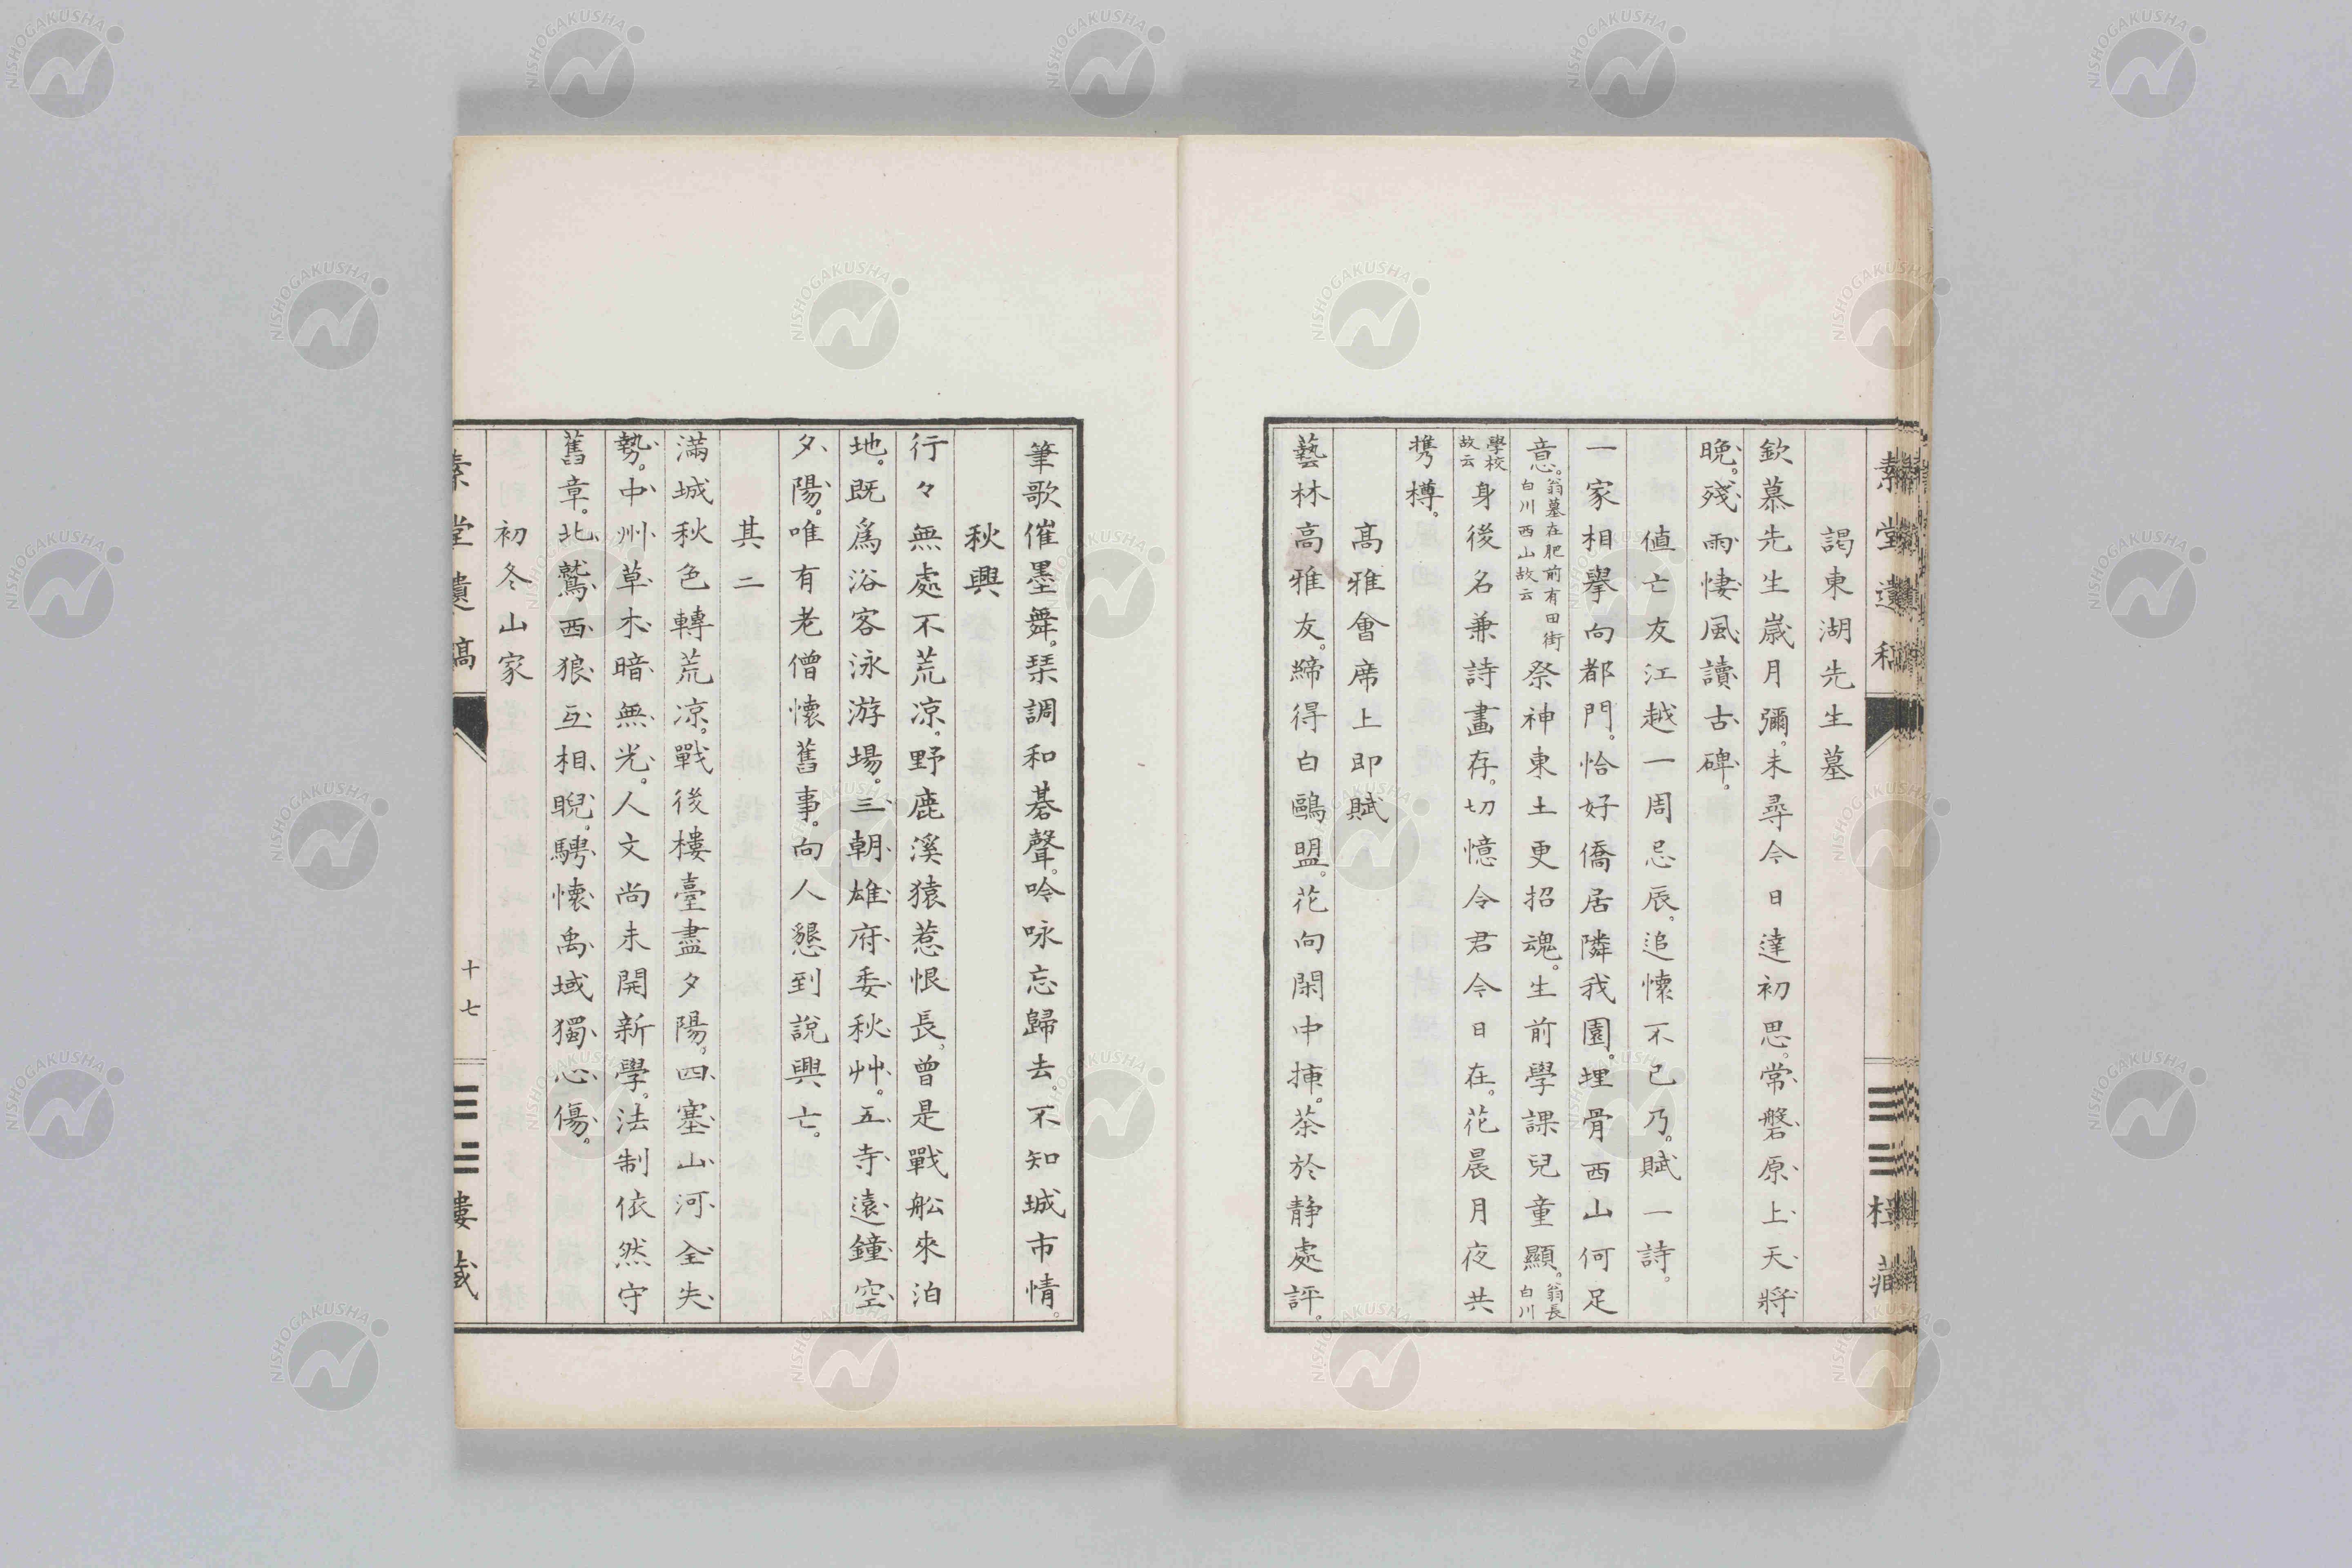 謁東湖先生墓
欽慕先生嵗月彌。未尋今日達初思。常磐原上天將
晚。殘雨悽風讀古碑。
値亡友江越一周忌辰。追懷不已乃。賦一詩。
一家相擧向都門。恰好僑居隣我園。埋骨西山何足
意。翁墓在肥前有田街白川西山故云祭神東土更招魂。生前學課兒童顯。翁長白川
學校故云身後名兼詩畵存。切憶令君今日在。花晨月夜共
携樽。
髙雅會席上即賦
藝林高雅友。締得白鷗盟。花向閑中揷。茶於静處評。
筆歌催墨舞。琹調和碁聲。吟咏忘歸去。不知城市情。
秋興
行々無處不荒凉。野鹿溪猿惹恨長。曾是戰舩來泊
地。既爲浴客泳游場。三朝雄府委秋艸。五寺遠鐘空
夕陽。唯有老僧懷舊事。向人懇到說興亡。
其二
滿城秋色轉荒凉。戰後樓臺盡夕陽。四塞山河全失
勢。中州草木暗無光。人文尚未開新學。法制依然守
舊章。北鷲西狼互相睨。騁懷禹域獨心傷。
初冬山家
素堂遺稿
十七
樓藏